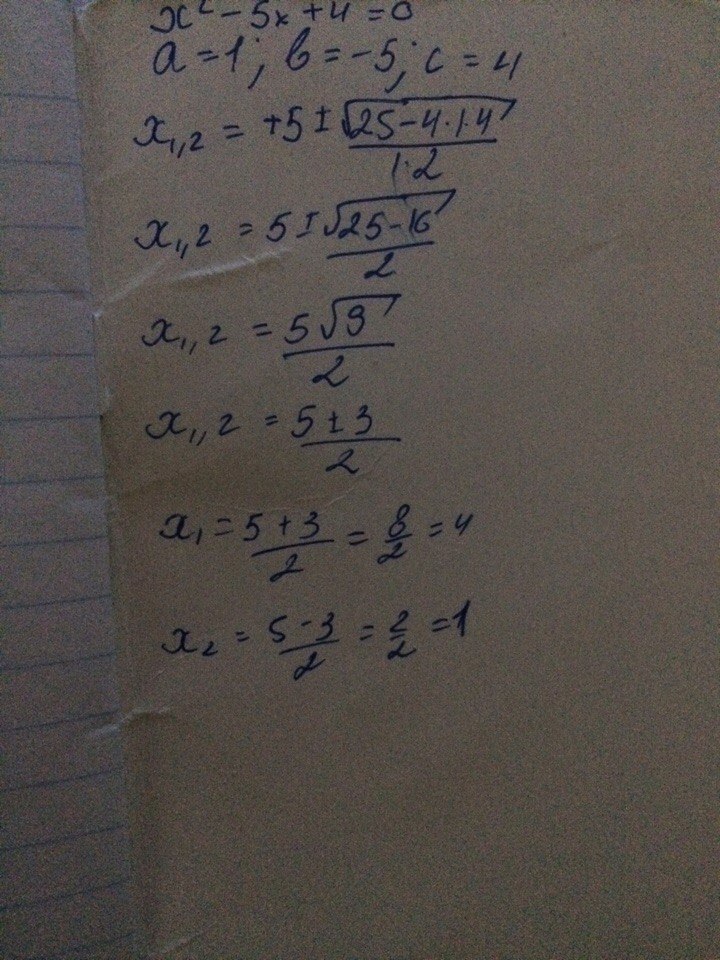 x² - 5x + 4 = 0
a = 1; b = -5; c = 4
x₁,₂ = +5 ± √25 - 4·1·4 / 1·2
x₁,₂ = 5 ± √25 - 16 / 2
x₁,₂ = 5 √9 / 2
x₁,₂ = 5 ± 3 / 2
x₁ = 5 + 3 / 2 = 8/2 = 4
x₂ = 5 - 3 / 2 = 2/2 = 1